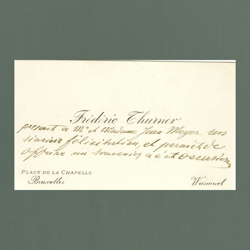 Frédéric Thurner
présent à Mr et Madame Jean Meyer ses
sincères félicitations et permet de
offrir un souvenir à cet occasion
PLACE DE LA CHAPELLE
Bruxelles Wasmuel